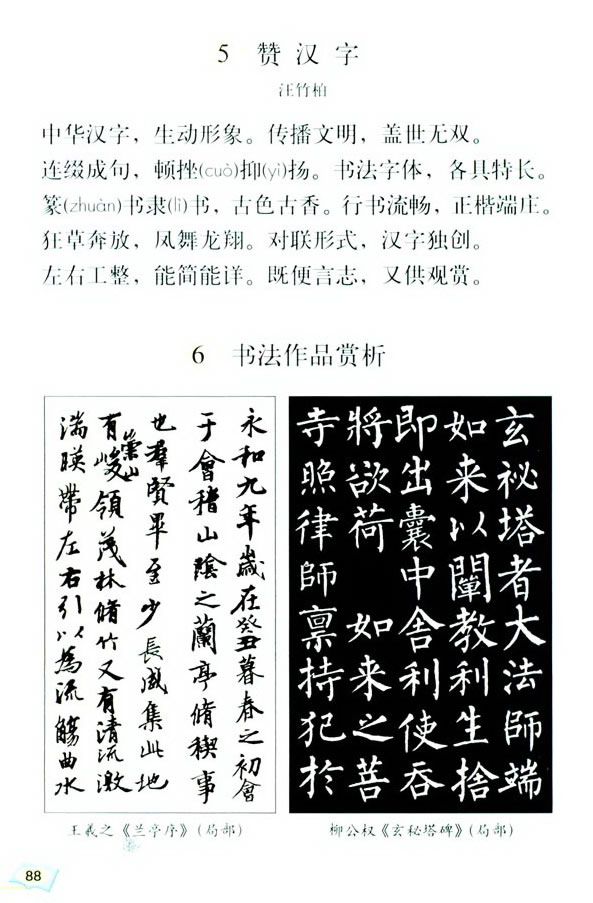 5 赞汉字
汪竹柏
中华汉字，生动形象。传播文明，盖世无双。
连缀成句，顿挫(cuò)抑(yì)扬。书法字体，各具特长。
篆(zhuàn)书隶(lì)书，古色古香。行书流畅，正楷端庄。
狂草奔放，凤舞龙翔。对联形式，汉字独创。
左右工整，能简能详。既便言志，又供观赏。
6 书法作品赏析
永和九年歲在癸丑暮春之初會
于會稽山陰之蘭亭脩稧事
也羣賢畢至少長咸集此地
有崇山峻領茂林脩竹又有清流激
湍暎帶左右引以為流觴曲水
玄祕塔者大法師端
如来以闡教利生捨
即出囊中舍利使吞
將欲荷 如来之菩
寺照律師禀持犯於
王羲之《兰亭序》(局部)
柳公权《玄秘塔碑》(局部)
88